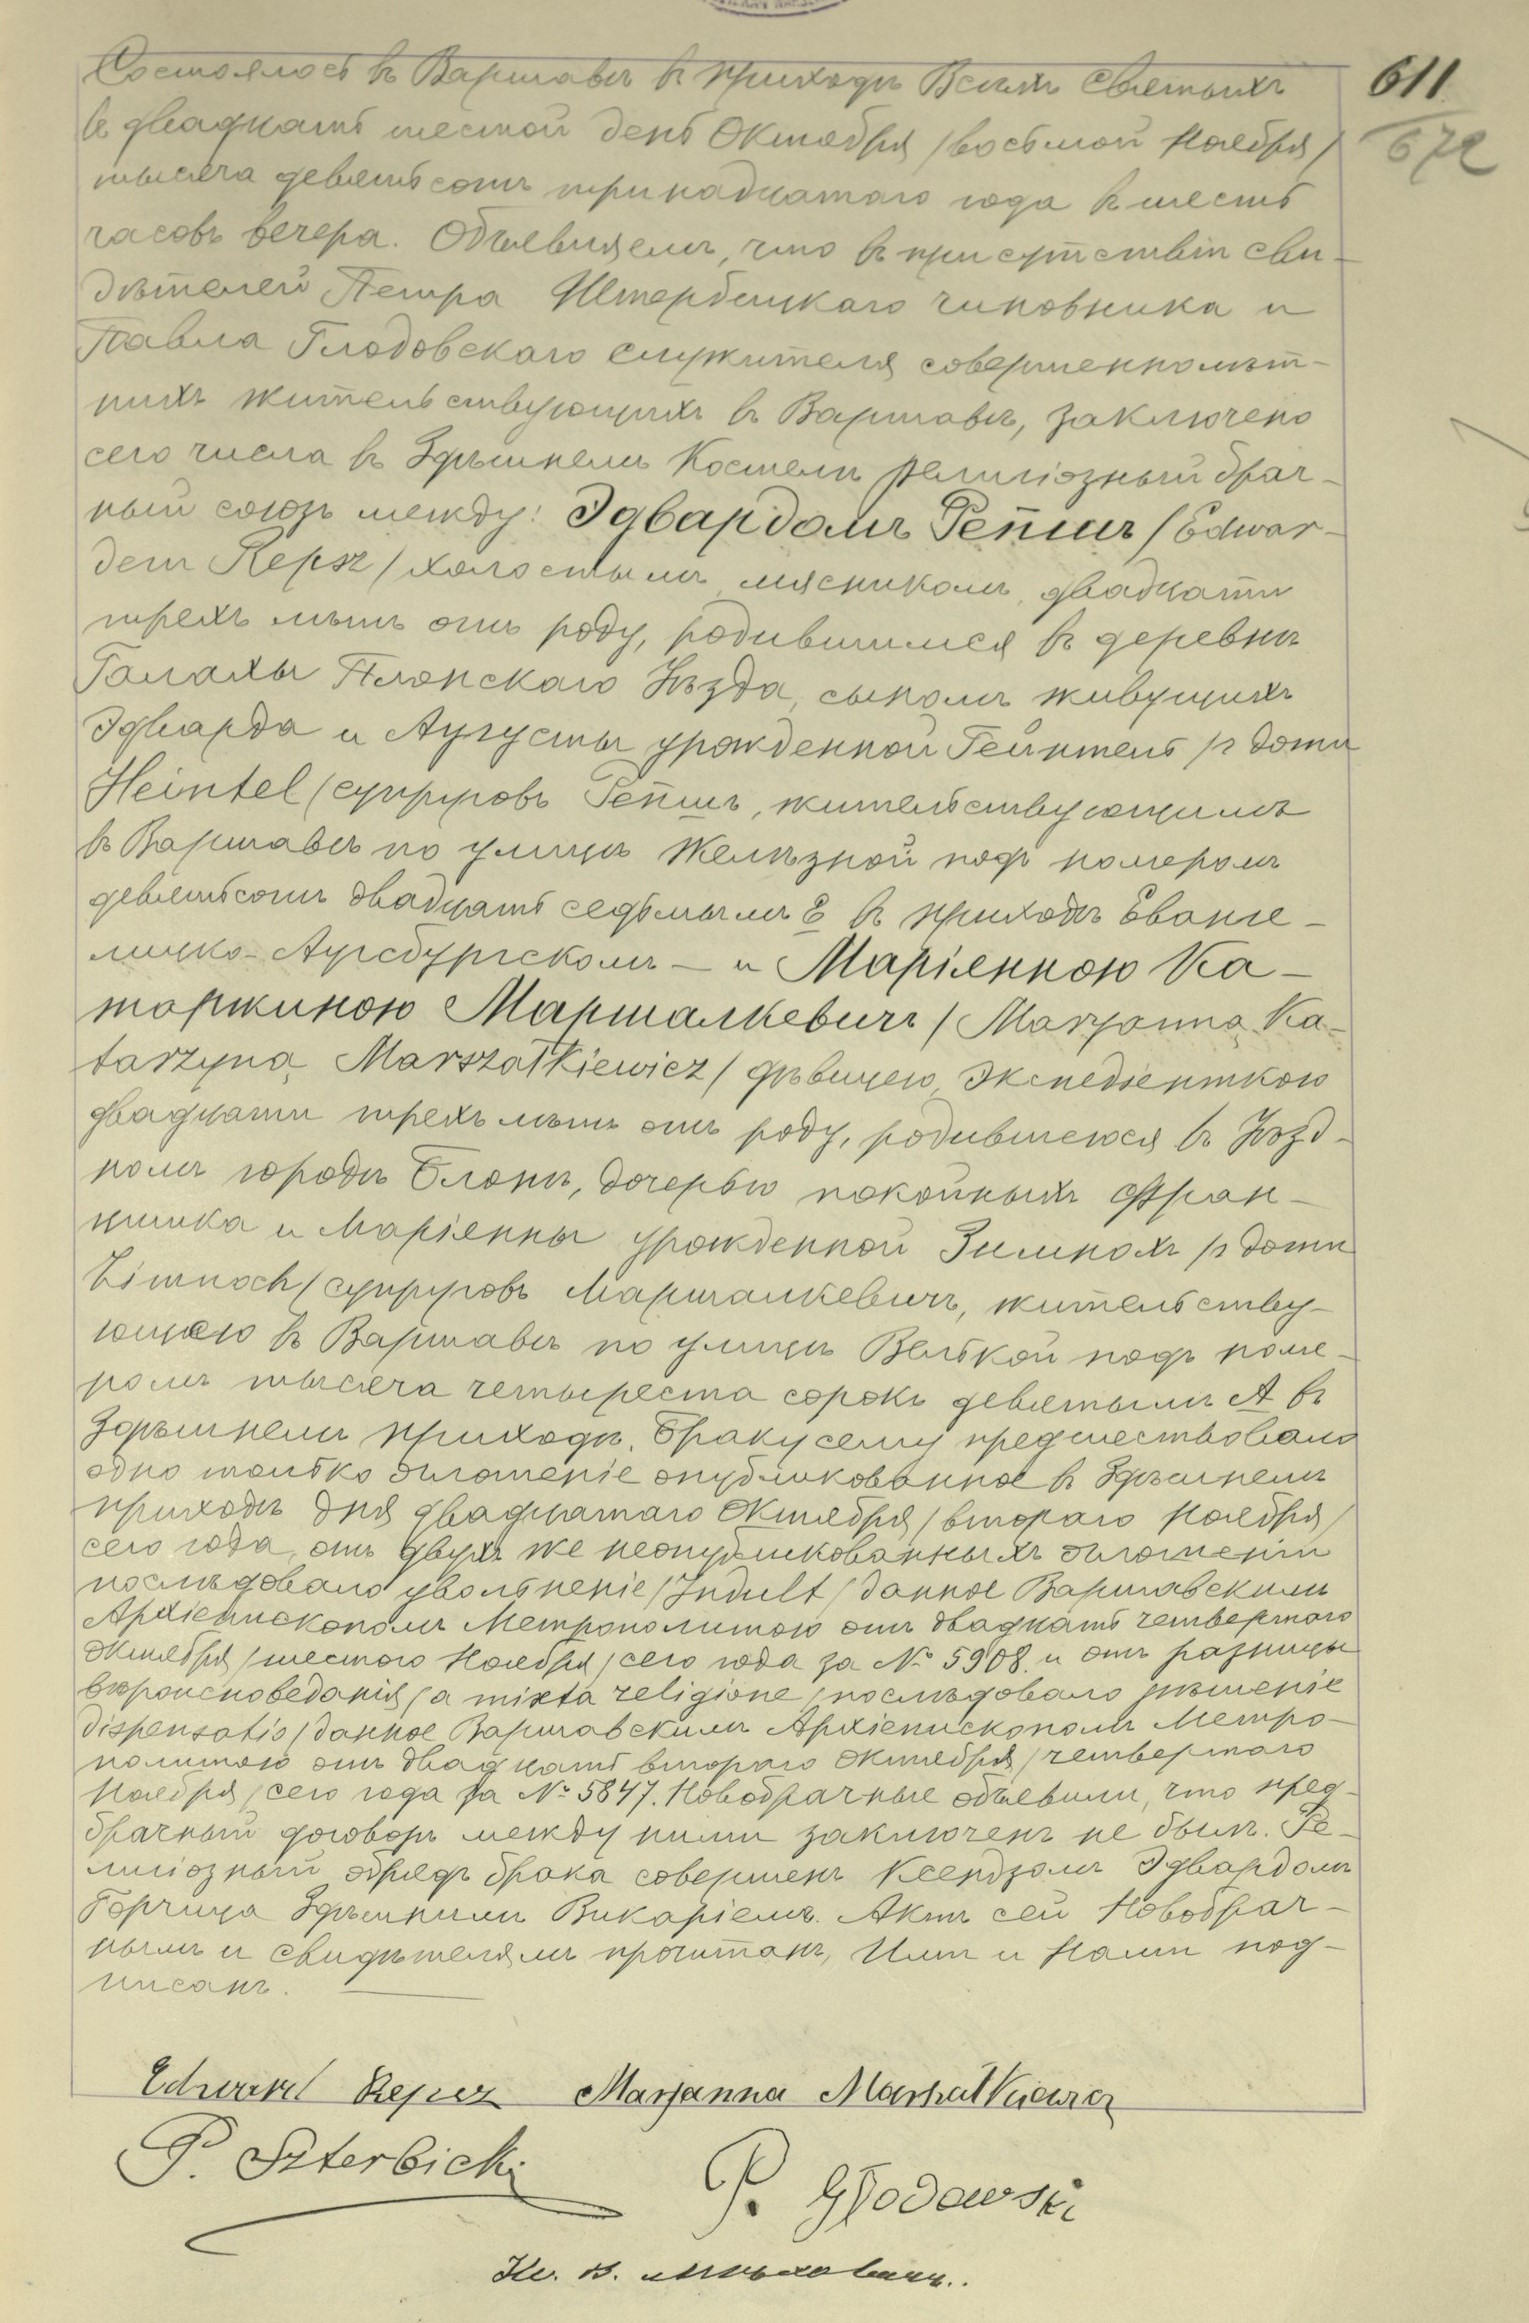 611
672
Состоялось въ Варшавѣ въ приходѣ Всѣхъ Святыхъ
въ двадцать шестой день Октября /восьмой Ноября/
тысяча девятьсотъ тринадцатаго года въ шесть
часовъ вечера. Объявляемъ, что въ присутствіи сви-
дѣтелей Петра Штербицкаго чиновника и
Павла Глодовскаго служителя совершеннолѣт-
нихъ жительствующихъ въ Варшавѣ, заключено
сего числа въ здѣшнемъ Костелѣ религіозный брач-
ный союзъ между: Эдвардомъ Репшъ /Edwar-
dem Repsz/ холостымъ, мясникомъ, двадцати
трехъ лѣтъ отъ роду, родившимся въ деревнѣ
Галахы Плонскаго Уѣзда, сыномъ живущихъ
Эдварда и Аугусты урожденной Гейнтель /z domu
Heintel/ супруговъ Репшъ, жительствующимъ
въ Варшавѣ по улицѣ Желѣзной подъ номеромъ
девятьсотъ двадцать седьмымъ Е въ приходѣ Еванге-
лицко-Аугсбургскомъ — и Маріянною Ка-
таржиною Маршалкевичъ /Maryanną Ka-
tarzyną Marszałkiewicz/ дѣвицею, экспедіенткою
двадцати трехъ лѣтъ отъ роду, родившеюся въ Уѣзд-
номъ городѣ Блонѣ, дочерью покойныхъ Фран-
цишка и Маріянны урожденной Зимнохъ /z domu
Zimnoch/ супруговъ Маршалкевичъ, жительству-
ющею въ Варшавѣ по улицѣ Велькой подъ номе-
ромъ тысяча четыреста сорокъ девятымъ А въ
здѣшнемъ приходѣ. Браку сему предшествовало
одно только оглашеніе опубликованное въ здѣшнемъ
приходѣ дня двадцатаго Октября /втораго Ноября/
сего года, отъ двухъ же неопубликованныхъ оглашеній
послѣдовало увольненіе /Indult/ данное Варшавскимъ
Архіепископомъ Метрополитою отъ двадцать четвертаго
Октября /шестого Ноября/ сего года за № 5908. и отъ разницы
вѣроисповеданія /a mixta religione/ послѣдовало рѣшеніе
dispensatio/ данное Варшавскимъ Архіепископомъ Метро-
политою отъ двадцать втораго Октября /четвертаго
Ноября/ сего года за № 5847. Новобрачные объявили, что пред-
брачный договоръ между ними заключенъ не былъ. Ре-
лигіозный обрядъ брака совершенъ Ксендзомъ Эдвардомъ
Горчица здѣшнимъ Викаріемъ. Актъ сей Новобрач-
нымъ и свидѣтелямъ прочитанъ, Ими и Нами под-
писанъ.
Edward Repsz Marjanna Marszałkiewicz
P. Szterbicki
P. Głodowski